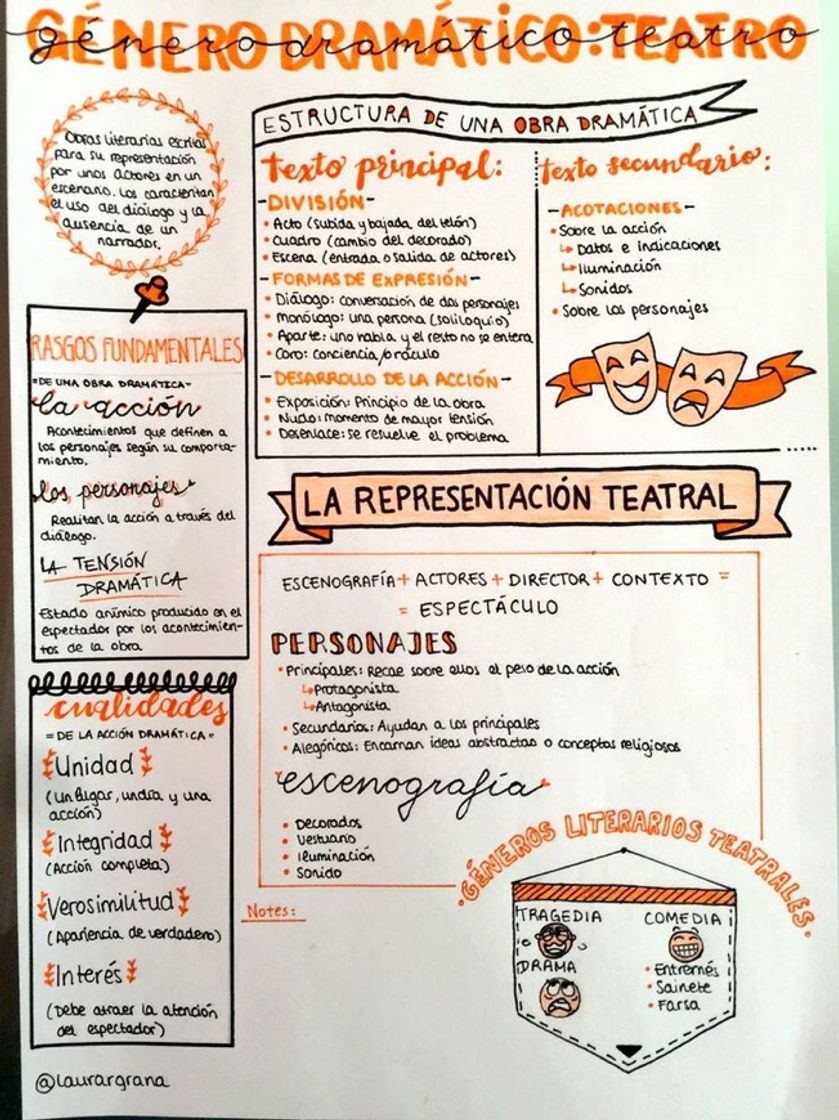 GÉNERO DRAMÁTICO: TEATRO
género dramático: teatro
Obras literarias escritas
para su representación
por unos actores en un
escenario. Los caracterizan
el uso del diálogo y la
ausencia de un
narrador.
RASGOS FUNDAMENTALES
= DE UNA OBRA DRAMÁTICA -
la acción
Acontecimientos que definen a
los personajes según su comporta-
miento.
los personajes
Realizan la acción a través del
diálogo.
LA TENSIÓN
DRAMÁTICA
Estado anímico producido en el
espectador por los acontecimien-
tos de la obra
cualidades
= DE LA ACCIÓN DRAMÁTICA =
Unidad
(Un lugar, un día y una
acción)
Integridad
(Acción completa)
Verosimilitud
(Apariencia de verdadero)
Interés
(Debe atraer la atención
del espectador)
@laurargrana
ESTRUCTURA DE UNA OBRA DRAMÁTICA
texto principal:
- DIVISIÓN -
• Acto (subida y bajada del telón)
• Cuadro (cambio del decorado)
• Escena (entrada o salida de actores)
- FORMAS DE EXPRESIÓN -
• Diálogo: conversación de dos personajes
• Monólogo: una persona (soliloquio)
• Aparte: uno habla y el resto no se entera
• Coro: conciencia/oráculo
- DESARROLLO DE LA ACCIÓN -
• Exposición: Principio de la obra
• Nudo: momento de mayor tensión
• Desenlace: se resuelve el problema
texto secundario:
- ACOTACIONES -
• Sobre la acción
↳ Datos e indicaciones
↳ Iluminación
↳ Sonidos
• Sobre los personajes
LA REPRESENTACIÓN TEATRAL
ESCENOGRAFÍA + ACTORES + DIRECTOR + CONTEXTO =
= ESPECTÁCULO
PERSONAJES
• Principales: Recae sobre ellos el peso de la acción
↳ Protagonista
↳ Antagonista
• Secundarios: Ayudan a los principales
• Alegóricos: Encarnan ideas abstractas o conceptos religiosos
escenografía
• Decorados
• Vestuario
• Iluminación
• Sonido
Notes:
• GÉNEROS LITERARIOS TEATRALES •
TRAGEDIA
DRAMA
COMEDIA
• Entremés
• Sainete
• Farsa